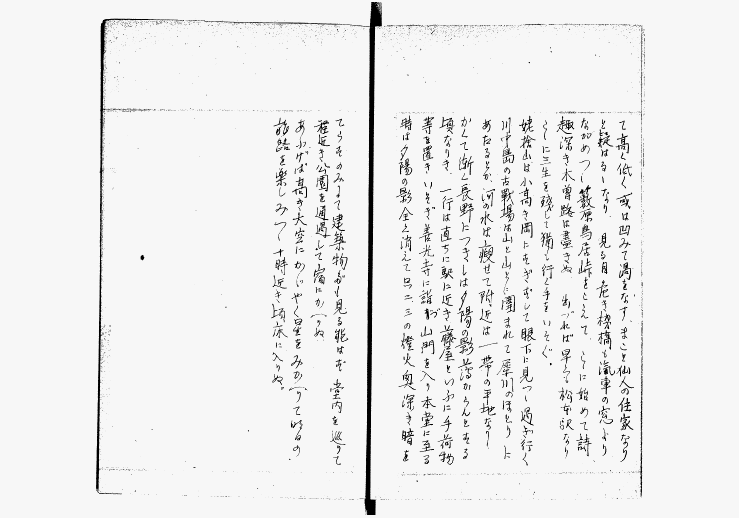 て高く低く或は凹みて渦をなす、まこと仙人の住家なり
と疑はるゝなり 見る目危き棧橋も汽車の窓より
ながめつゝ藪原鳥居峠をこえて こゝに始めて詩
趣深き木曽路は盡きぬ 出づれば早や松本駅なり
こゝに三生を残して猶も行く手をいそぐ。
姥捨山は小高き岡にすぎずして眼下に見つゝ過ぎ行く
川中島の古戦場は山と山とに圍まれて犀川のほとりに
あたるとか、河の水は痩せて附近は一帯の平地なり
かくて漸く長野につきしは夕陽の影薄からんとする
頃なりき、一行は直ちに駅に近き藤屋といふに手荷物
等を置きいそぎ善光寺に詣づ山門を入り本堂に至る
時は夕陽の影全く消えて只二三の燈火奥深き暗を
てらすのみにて建築物など見る能はず 堂内を巡りて
程近き公園を通過して宿にかへりぬ
あふげば高き大空にかゞやく星をみかへりて明日の
旅路を楽しみつゝ十時近き頃床に入りぬ。